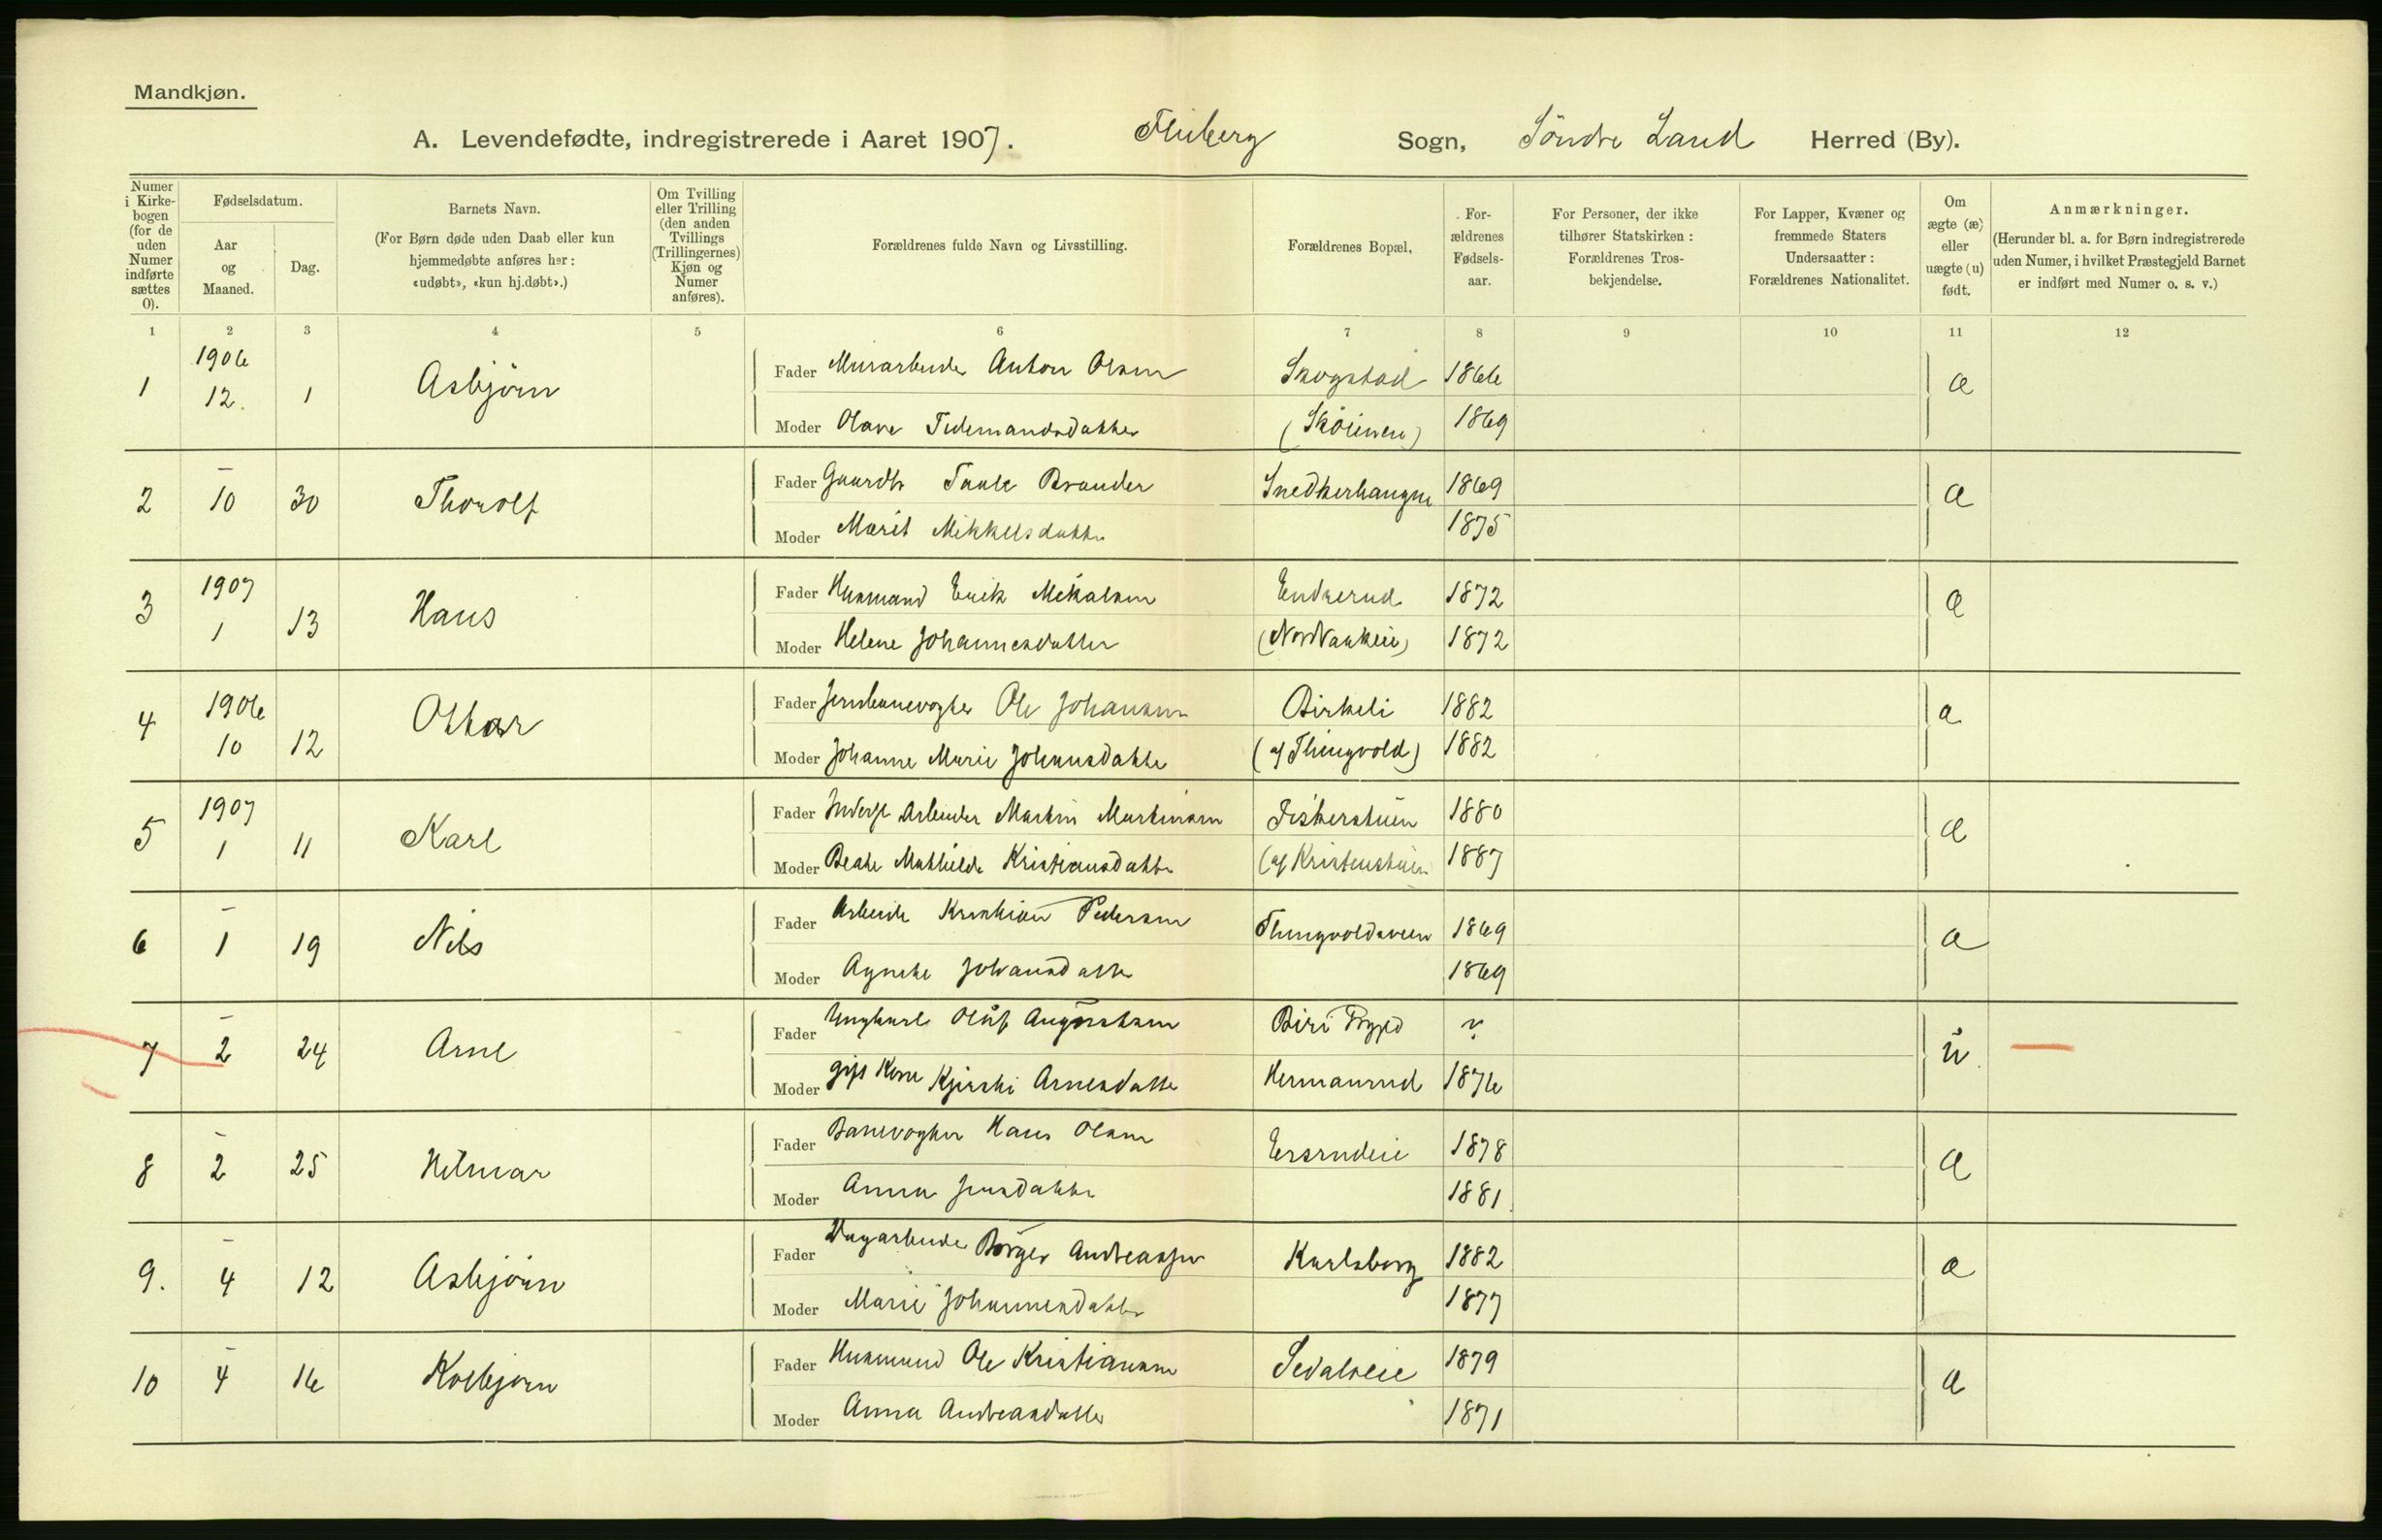 Mandkjøn.
A. Levendefødte, indregistrerede i Aaret 1907. Fluberg Sogn, Söndre Land Herred (By).
Numer i Kirkebogen (for de uden Numer indførte sættes 0).
Fødselsdatum.
Aar og Maaned.
Dag.
Barnets Navn.
(For Børn døde uden Daab eller kun hjemmedøbte anføres her: «udøbt», «kun hj.døbt».)
Om Tvilling eller Trilling (den anden Tvillings (Trillingernes) Kjøn og Numer anføres).
Forældrenes fulde Navn og Livsstilling.
Forældrenes Bopæl.
Forældrenes Fødselsaar.
For Personer, der ikke tilhører Statskirken: Forældrenes Trosbekjendelse.
For Lapper, Kvæner og fremmede Staters Undersaatter: Forældrenes Nationalitet.
Om ægte (æ) eller uægte (u) født.
Anmærkninger.
(Herunder bl. a. for Børn indregistrerede uden Numer, i hvilket Præstegjeld Barnet er indført med Numer o. s. v.)
1 2 3 4 5 6 7 8 9 10 11 12
1 1906 12. 1 Asbjörn
Fader Murarbeider Anton Olsen Skogstad 1866 æ
Moder Olave Tidemandsdatter (Sköienen) 1869
2 – 10 30 Thorolf
Fader Gaardbr Paule Brander Snedkerhaugen 1869 æ
Moder Marit Mikkelsdatter 1875
3 1907 1 13 Hans
Fader Husmand Erik Mikalsen Enderud 1872 æ
Moder Helene Johannesdatter 1872
4 1906 10 12 Ottar
Fader Jernbanevogter Ole Johansen Birkeli 1882 æ
Moder Johanne Marie Johansdatter (af Thingvold) 1882
5 1907 1 11 Karl
Fader Arbeider Martin Martinsen Fiskerstuen 1880 æ
Moder Beate Mathilde Kristiansdatter (af Kristenstuen 1887
6 – 1 19 Nils
Fader Arbeider Kristian Pedersen Thingvoldsveen 1869 æ
Moder Agnethe Johansdatter 1869
7 – 2 24 Arne
Fader Ungkarl Oluf Augustsen Biri Bygd ? u.
Moder gift Kone Kjersti Arnesdatter Hermanrud 1876
8 – 2 25 Hilmar
Fader Banevogter Hans Olsen Ersrudeie 1878 æ
Moder Anna Jensdatter 1881
9. – 4 12 Asbjörn
Fader Dagarbeider Börger Andreassen Karlsborg 1882 æ
Moder Marie Johannesdatter 1877
10 – 4 16 Kolbjørn
Fader Husmand Ole Kristiansen Sedalseie 1879 æ
Moder Anna Andreasdatter 1871